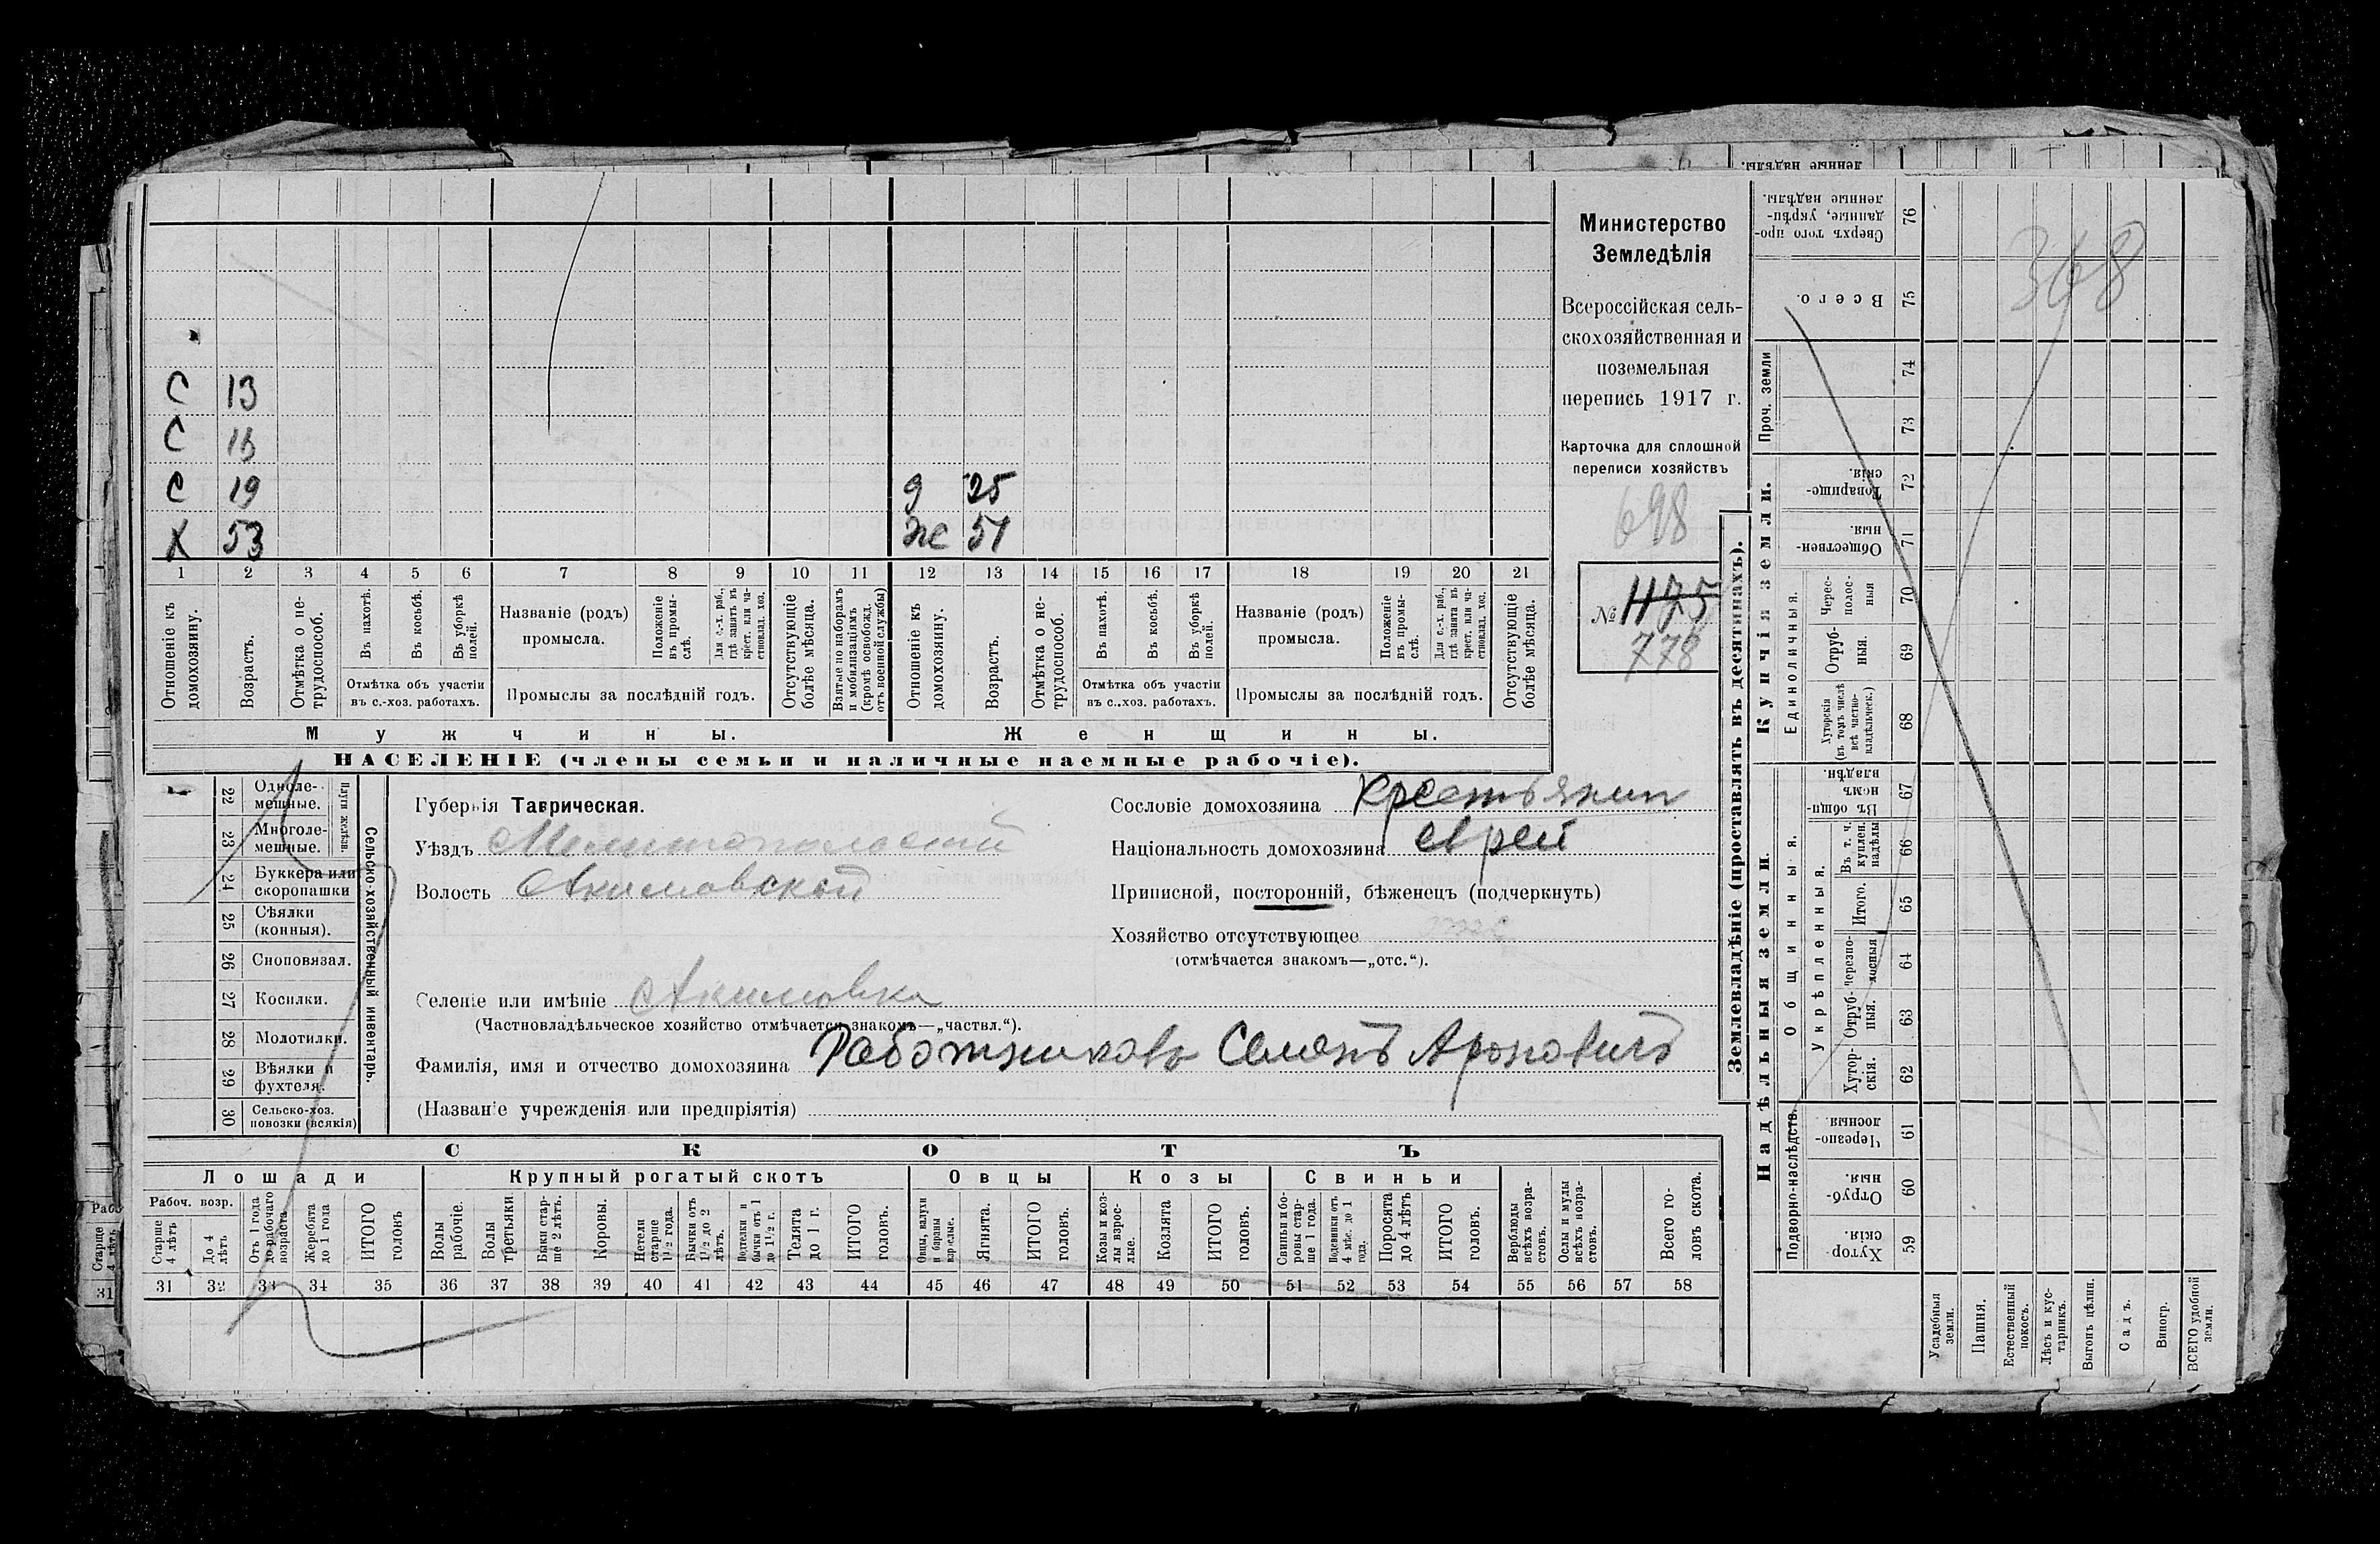 С 13
С 15
С 19
д 25
Х 53
же 51
1 2 3 4 5 6 7 8 9 10 11 12 13 14 15 16 17 18 19 20 21
Отношеніе къ домохозяину.
Возрастъ.
Отмѣтка о нетрудоспособ.
Въ пахотѣ.
Въ косьбѣ.
Въ уборкѣ полей.
Отмѣтка объ участіи
въ с.-хоз. работахъ.
Названіе (родъ)
промысла.
Положеніе въ промыслѣ.
Для с.-х. раб., гдѣ занятъ въ крест. или частновлад. хоз.
Промыслы за послѣдній годъ.
Отсутствующіе болѣе мѣсяца.
Взятые по наборамъ и мобилизаціямъ (кромѣ освобожд. отъ военной службы)
Отношеніе къ домохозяину.
Возрастъ.
Отмѣтка о нетрудоспособ.
Въ пахотѣ.
Въ косьбѣ.
Въ уборкѣ полей.
Отмѣтка объ участіи
въ с..хоз. работахъ.
Названіе (родъ)
промысла.
Положеніе въ промыслѣ.
Для с.-х. раб., гдѣ занята въ крест. или частновлад. хоз.
Промыслы за послѣдній годъ.
Отсутствующіе болѣе мѣсяца.
Мужчины.
Женщины.
НАСЕЛЕНІЕ (члены семьи и наличные наемные рабочіе).
Министерство
Земледѣлія
Всероссійская сель-
скохозяйственная и
поземельная
перепись 1917 г.
Карточка для сплошной
переписи хозяйствъ
698
№ 1175
778
22 Одноле-
мешные.
23 Многоле-
мешные.
Плуги желѣзн.
24 Буккера или
скоропашки
25 Сѣялки
(конныя).
26 Сноповязал.
27 Косилки.
28 Молотилки.
29 Вѣялки и
фухтеля.
30 Сельско-хоз.
повозки (всякія)
Сельско-хозяйственный инвентарь.
Губернія Таврическая.
Уѣздъ Мелитопольскій
Волость Акимовской
Селеніе или имѣніе Акимовка
(Частновладѣльческое хозяйство отмѣчается знакомъ—„частвл.“).
Фамилія, имя и отчество домохозяина Работниковъ Семенъ Ароновичъ
(Названіе учрежденія или предпріятія)
Сословіе домохозяина крестьянин
Національность домохозяина еврей
Приписной, посторонній, бѣженецъ (подчеркнуть)
Хозяйство отсутствующее
(отмѣчается знакомъ—„отс.“).
СКОТЪ
Лошади
Рабоч. возр.
Старше 4 лѣтъ
До 4 лѣтъ
Отъ 1 года до рабочаго возраста
Жеребята до 1 года
ИТОГО головъ
Крупный рогатый скотъ
Волы рабочіе.
Волы третьяки
Быки старше 2 лѣтъ.
Коровы.
Нетели старше 1½ года.
Бычки отъ 1½ до 2 лѣтъ.
Подтелки и бычки отъ 1 до 1½ г.
Телята до 1 г.
ИТОГО головъ.
Овцы
Овцы, валухи и бараны взрослые.
Ягнята.
ИТОГО головъ.
Козы
Козы и козлы взрослые.
Козлята
ИТОГО головъ.
Свиньи
Свиньи и боровы старше 1 года.
Подсвинки отъ 4 мѣс. до 1 года.
Поросята до 4 лѣтъ
ИТОГО головъ.
Верблюды всѣхъ возрастовъ.
Ослы и мулы всѣхъ возрастовъ.
Всего головъ скота.
31 32 33 34 35 36 37 38 39 40 41 42 43 44 45 46 47 48 49 50 51 52 53 54 55 56 57 58
Землевладѣніе (проставлять въ десятинахъ).
368
Сверхъ того проданные, укрѣпленные надѣлы. 76
Всего. 75
Проч. земли
74
73
Купчія земли.
Товарищескія. 72
Общественныя. 71
Единоличныя.
Чересполосныя 70
Отрубныя. 69
Хуторскія (въ томъ числѣ всѣ частновладѣльческ.) 68
Надѣльныя земли.
Общинныя.
Въ общинномъ владѣн. 67
Укрѣпленныя.
Въ т. ч. куплен. надѣлы 66
Итого. 65
Черезполосныя 64
Отрубныя. 63
Хуторскія. 62
Подворно-наслѣдств.
Черезполосныя. 61
Отрубныя. 60
Хуторскія. 59
Усадебныя земли.
Пашня.
Естественный покосъ.
Лѣсъ и кустарникъ.
Выгонъ цѣлин.
Садъ.
Виногр.
ВСЕГО удобной земли.
Старше 4 лѣтъ
31